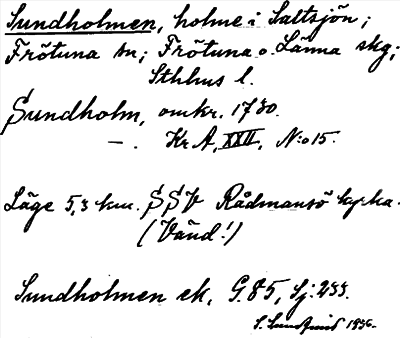 Sundholmen, holme i Saltsjön;
Frötuna sn; Frötuna o. Länna skg;
Sthlms l.
Sundholm, omkr. 1730.
—. Kr A, XXII, N:o 15.
Läge 5,3 km. SSV Rådmansö kyrka.
(Vänd!)
Sundholmen ek, G. 85, Sj: 233.
S. 1936.